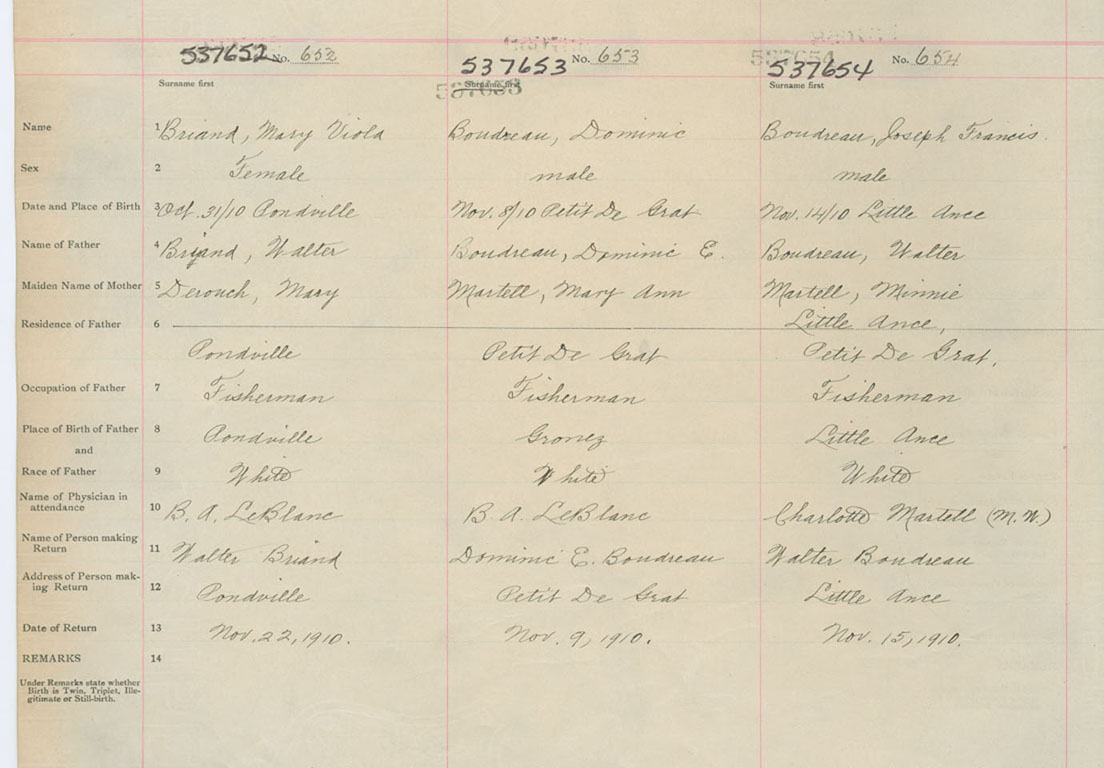 537652 No. 652 537653 No. 653 537654 No. 654
Surname first Surname first Surname first
Name 1 Briand, Mary Viola Boudreau, Dominic Boudreau, Joseph Francis.
Sex 2 Female male male
Date and Place of Birth 3 Oct. 31/10 Pondville Nov. 8/10 Petit De Grat Nov. 14/10 Little Ance
Name of Father 4 Briand, Walter Boudreau, Dominic E. Boudreau, Walter
Maiden Name of Mother 5 Derouch, Mary Martell, Mary Ann Martell, Minnie
Residence of Father 6 Little Ance,
Pondville Petit De Grat Petit De Grat.
Occupation of Father 7 Fisherman Fisherman Fisherman
Place of Birth of Father 8 Pondville Little Ance
and
Race of Father 9 White White White
Name of Physician in
attendance 10 B. A. LeBlanc B. A. LeBlanc Charlotte Martell (M.W.)
Name of Person making
Return 11 Walter Briand Dominic E. Boudreau Walter Boudreau
Address of Person mak-
ing Return 12 Pondville Petit De Grat Little Ance
Date of Return 13 Nov. 22, 1910. Nov. 9, 1910. Nov. 15, 1910.
REMARKS 14
Under Remarks state whether
Birth is Twin, Triplet, Ille-
gitimate or Still-birth.